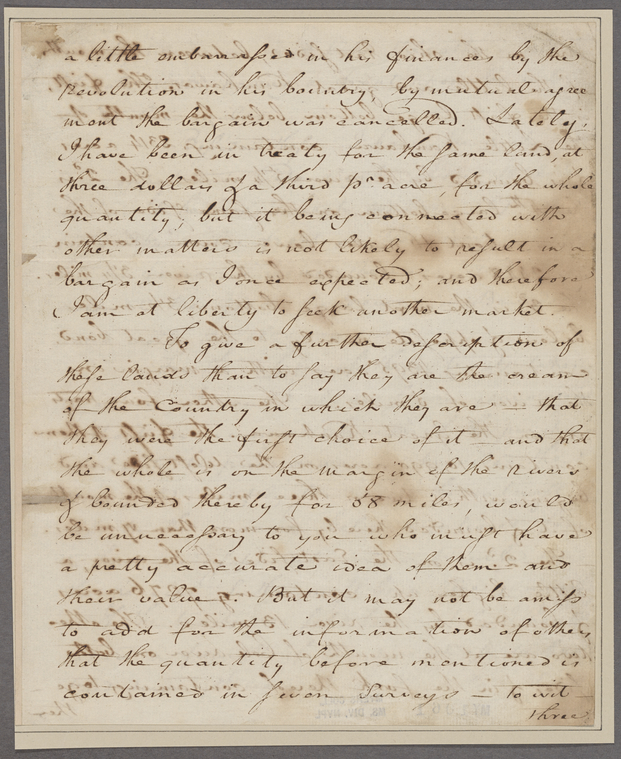 a little embarrassed in his finances by the
revolution in his Country, by mutual agree
ment the bargain was cancelled. Lately,
I have been in treaty for the same land, at
three dollars & a third pr. acre, for the whole
quantity; but it being connected with
other matters is not likely to result in a
bargain as I once expected; and therefore
I am at liberty to seek another market.
To give a further description of
these lands than to say they are the cream
of the Country in which they are — that
they were the first choice of it — and that
the whole is on the margin of the rivers
& bounded thereby for 58 miles, would
be unnecessary to you who must have
a pretty accurate idea of them and
their value. But it may not be amiss
to add for the information of others,
that the quantity before mentioned is
contained in seven Surveys — to wit —
three